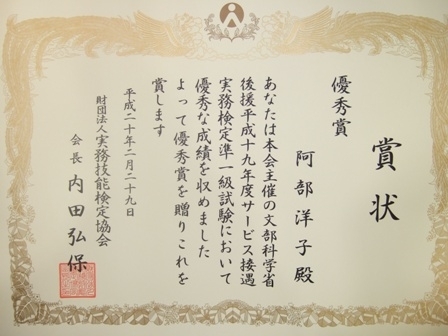 賞状
優秀賞
阿部洋子殿
あなたは本会主催の文部科学省
後援平成十九年度サービス接遇
実務検定準一級試験において
優秀な成績を収めました
よって優秀賞を贈りこれを
賞します
平成二十年二月二十九日
財団法人実務技能検定協会
会長 内田弘保